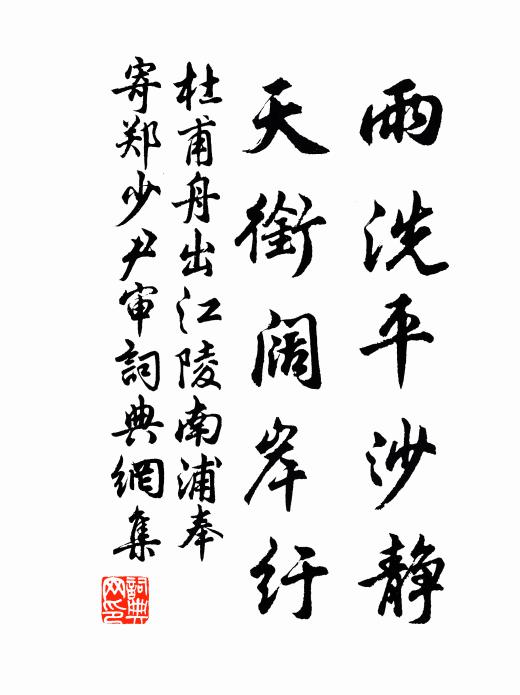 雨洗平沙静
天衔阔岸纡
杜甫舟出江陵南浦奉
寄郑少尹审詞典網集
詞典網印